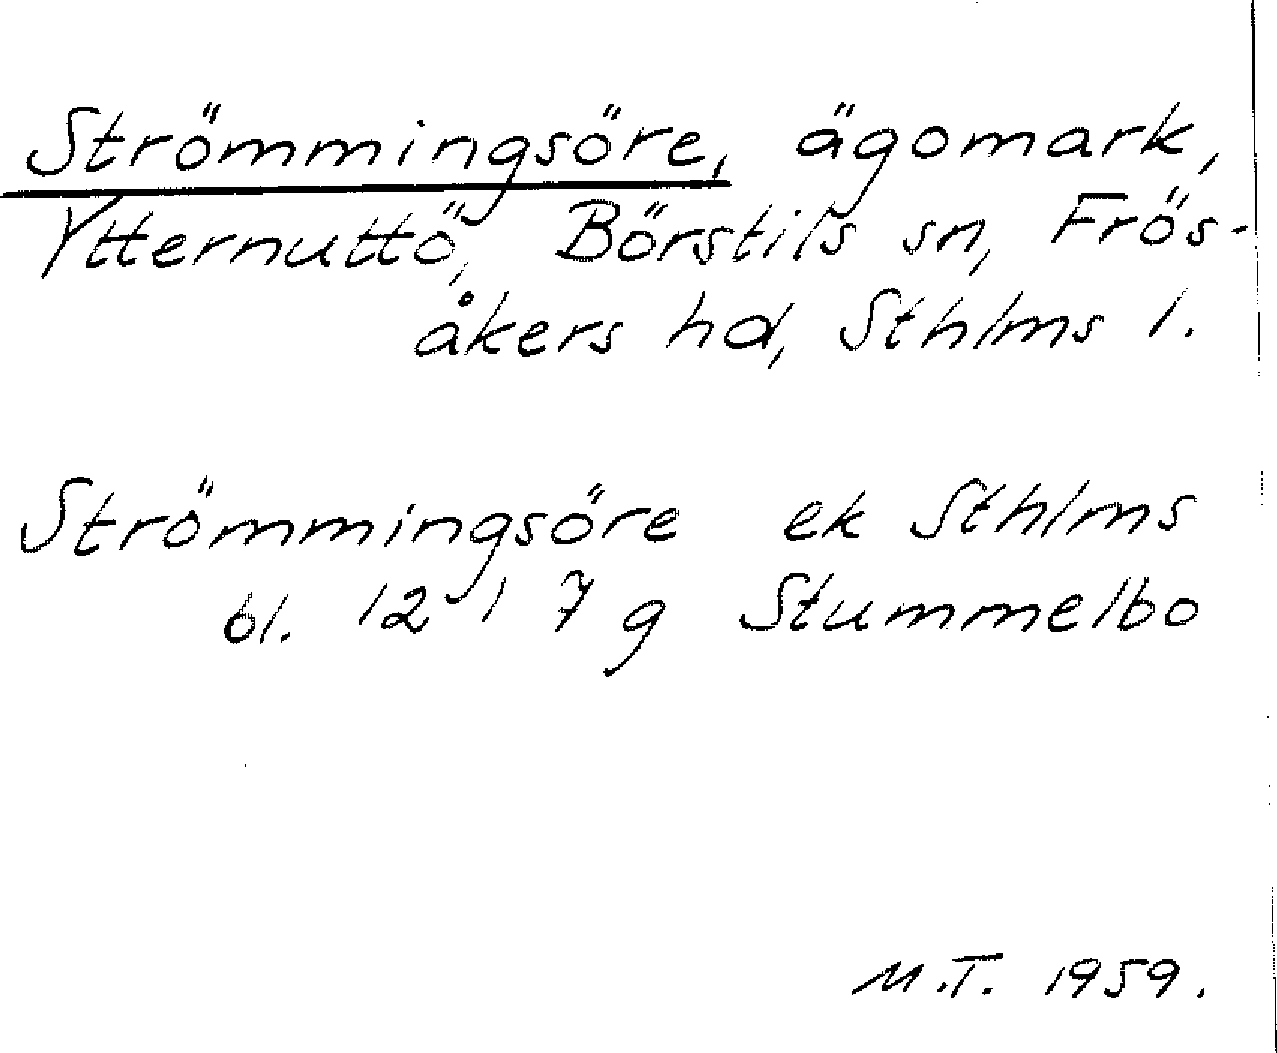 Strömmingsöre, ägomark,
Ytternuttö, Börstils sn, Frös-
åkers hd, Sthlms l.
Strömmingsöre ek Sthlms
bl. 12 I 7 g Stummelbo
M.T. 1959.